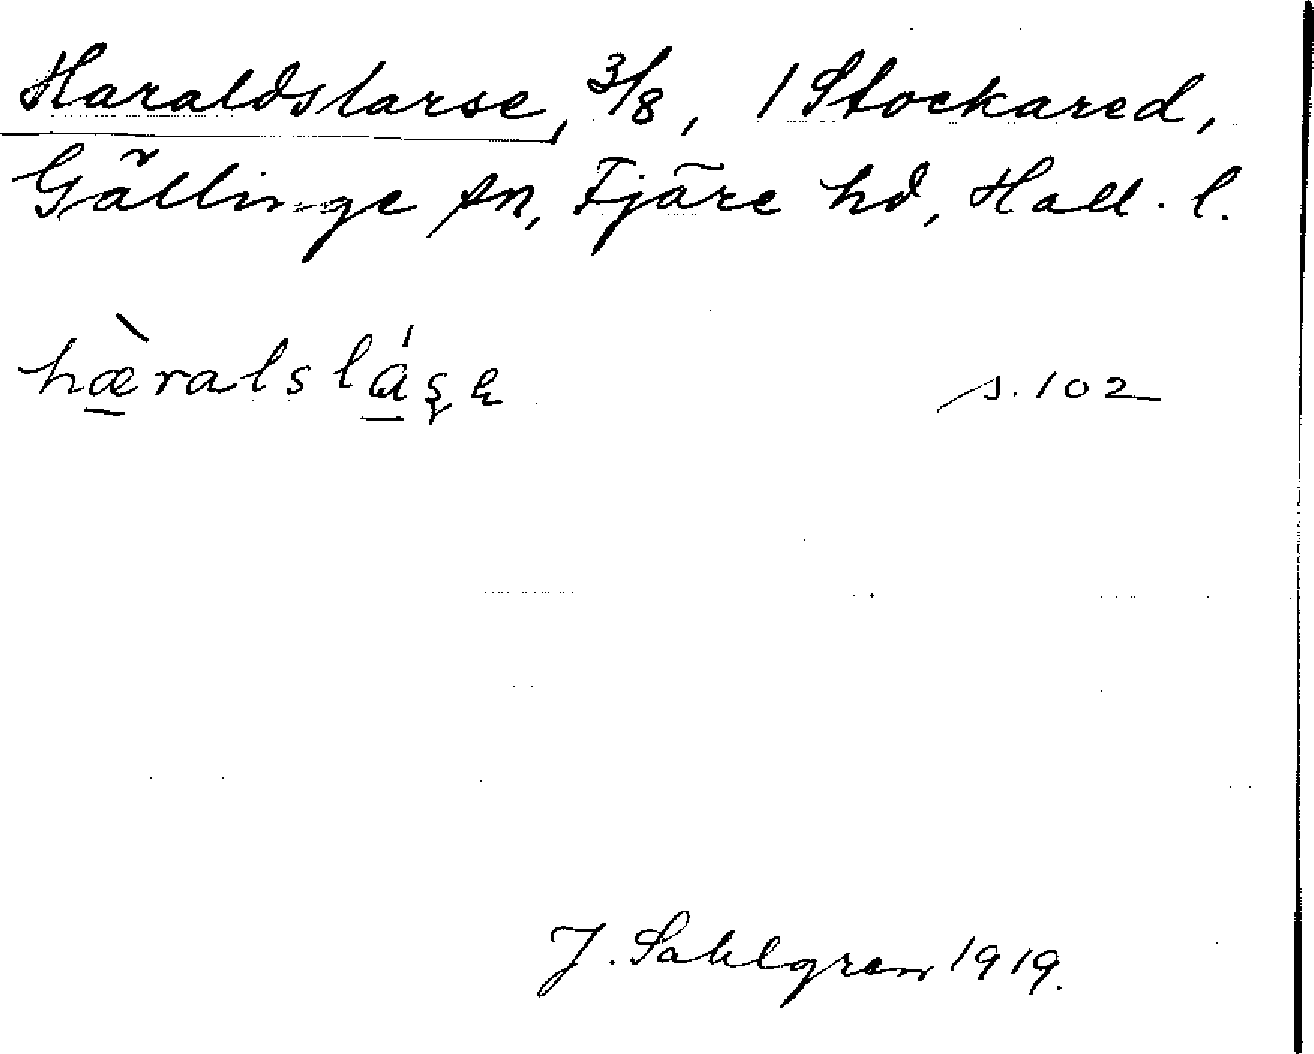 Haraldslarse, 3/8, 1 Stockared,
Gällinge sn, Fjäre hd, Hall. l.
hæ̀ralsláşe s. 102
J. Sahlgren 1919.